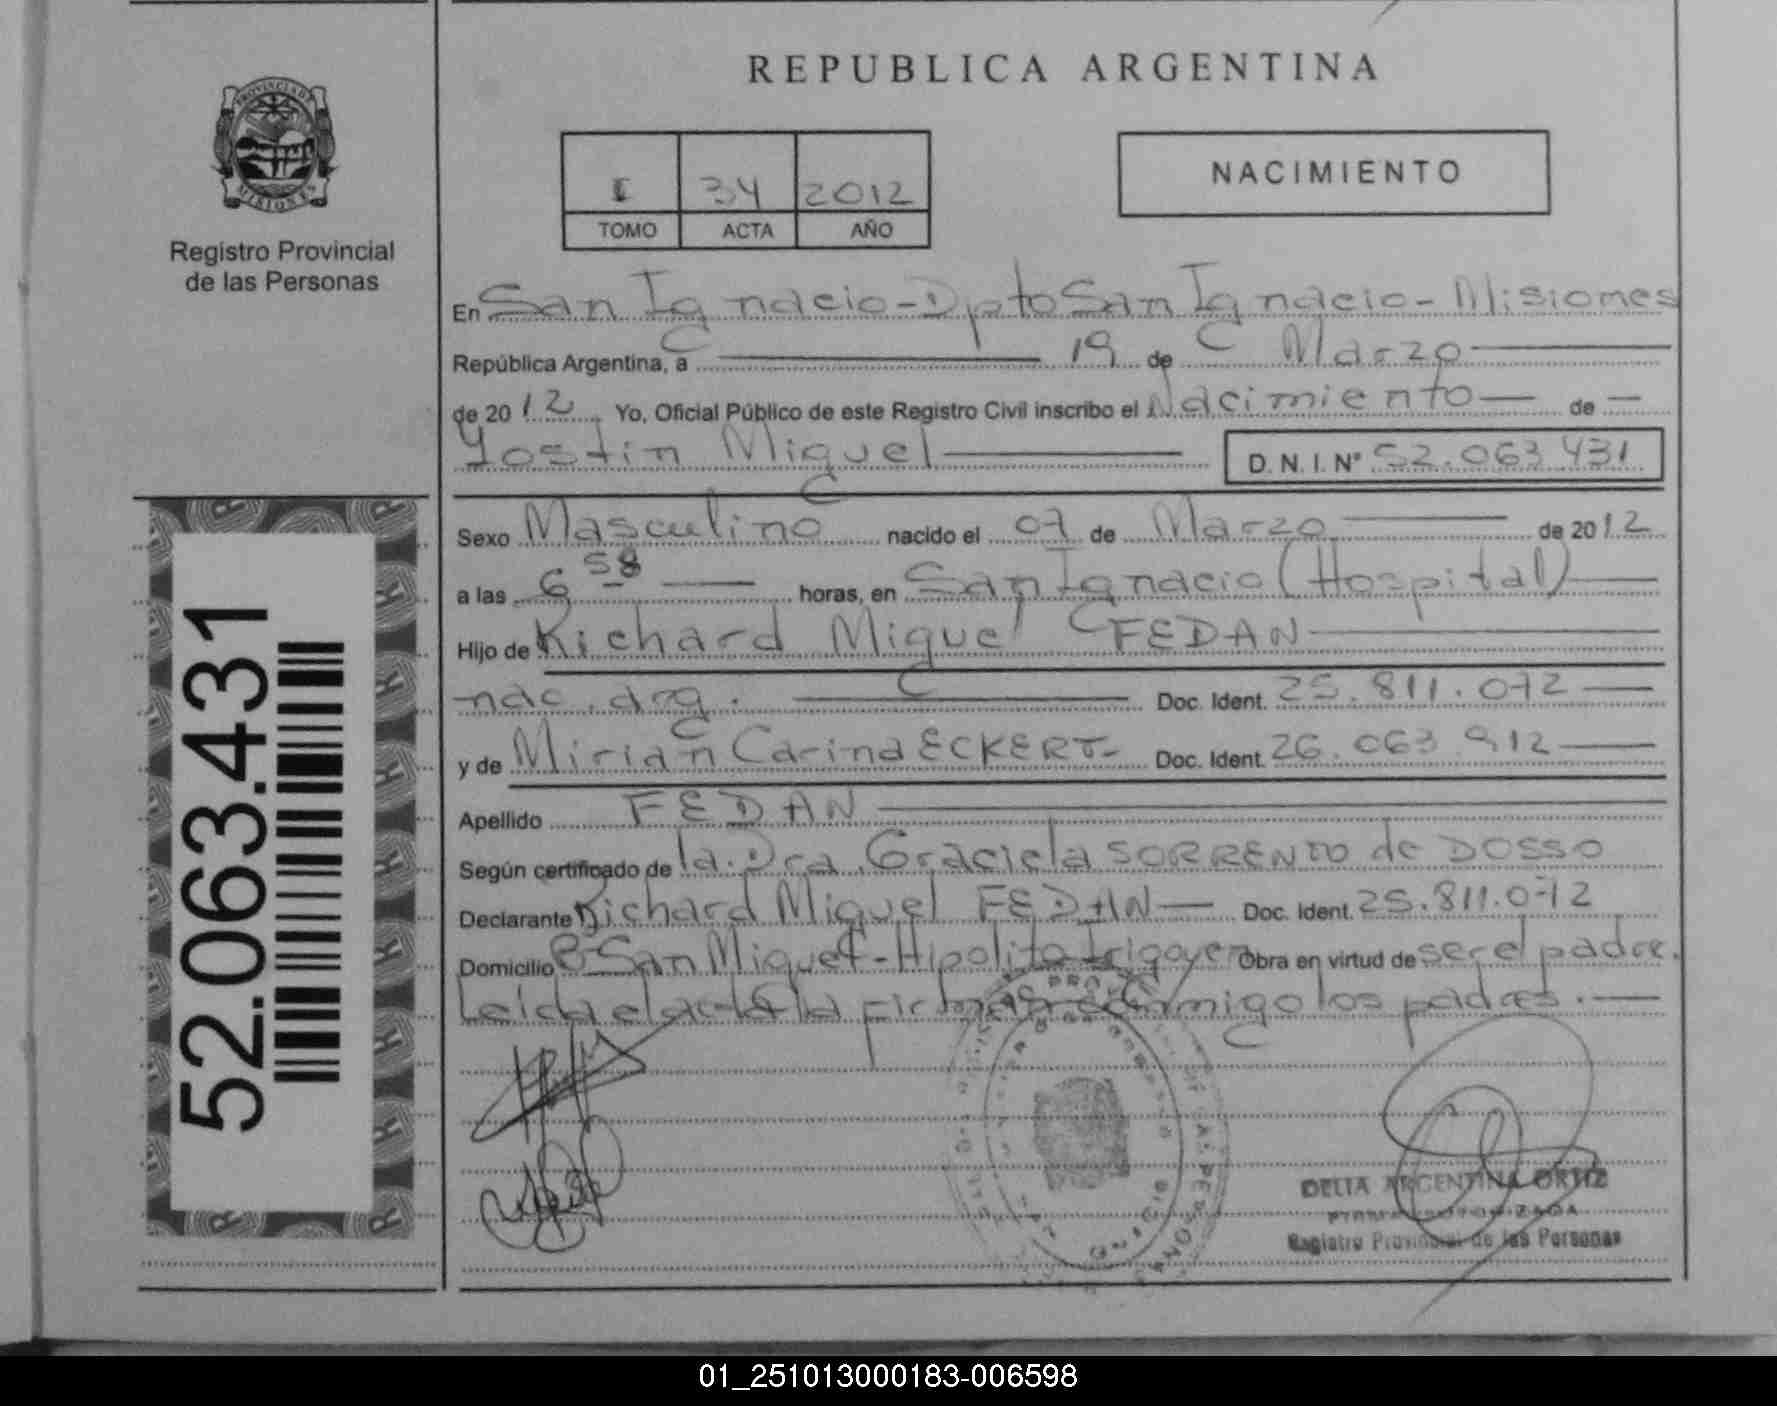 REPUBLICA ARGENTINA
PROVINCIA DE
MISIONES
Registro Provincial
de las Personas
I 34 2012
TOMO ACTA AÑO
NACIMIENTO
En San Ignacio - Dpto San Ignacio - Misiones
República Argentina, a 19 de Marzo
de 2012 Yo, Oficial Público de este Registro Civil inscribo el Nacimiento de
Yostin Miguel D.N.I. Nº 52.063.431
Sexo Masculino nacido el 07 de Marzo de 2012
a las 6 58 horas, en San Ignacio (Hospital)
Hijo de Richard Miguel FEDAN
nac. arg. Doc. Ident. 25.811.072
y de Mirian Carina ECKERT- Doc. Ident. 26.063.912
Apellido FEDAN
Según certificado de la. Dra. Graciela SORRENTO de DOSSO
Declarante Richard Miguel FEDAN Doc. Ident. 25.811.072
Domicilio San Miguel - Hipolito Irigoyen Obra en virtud de ser el padre.
Leida el acta la firman conmigo los padres.
52.063.431
DELIA ARGENTINA ORTIZ
FIRMA AUTORIZADA
Registro Provincial de las Personas
01_251013000183-006598